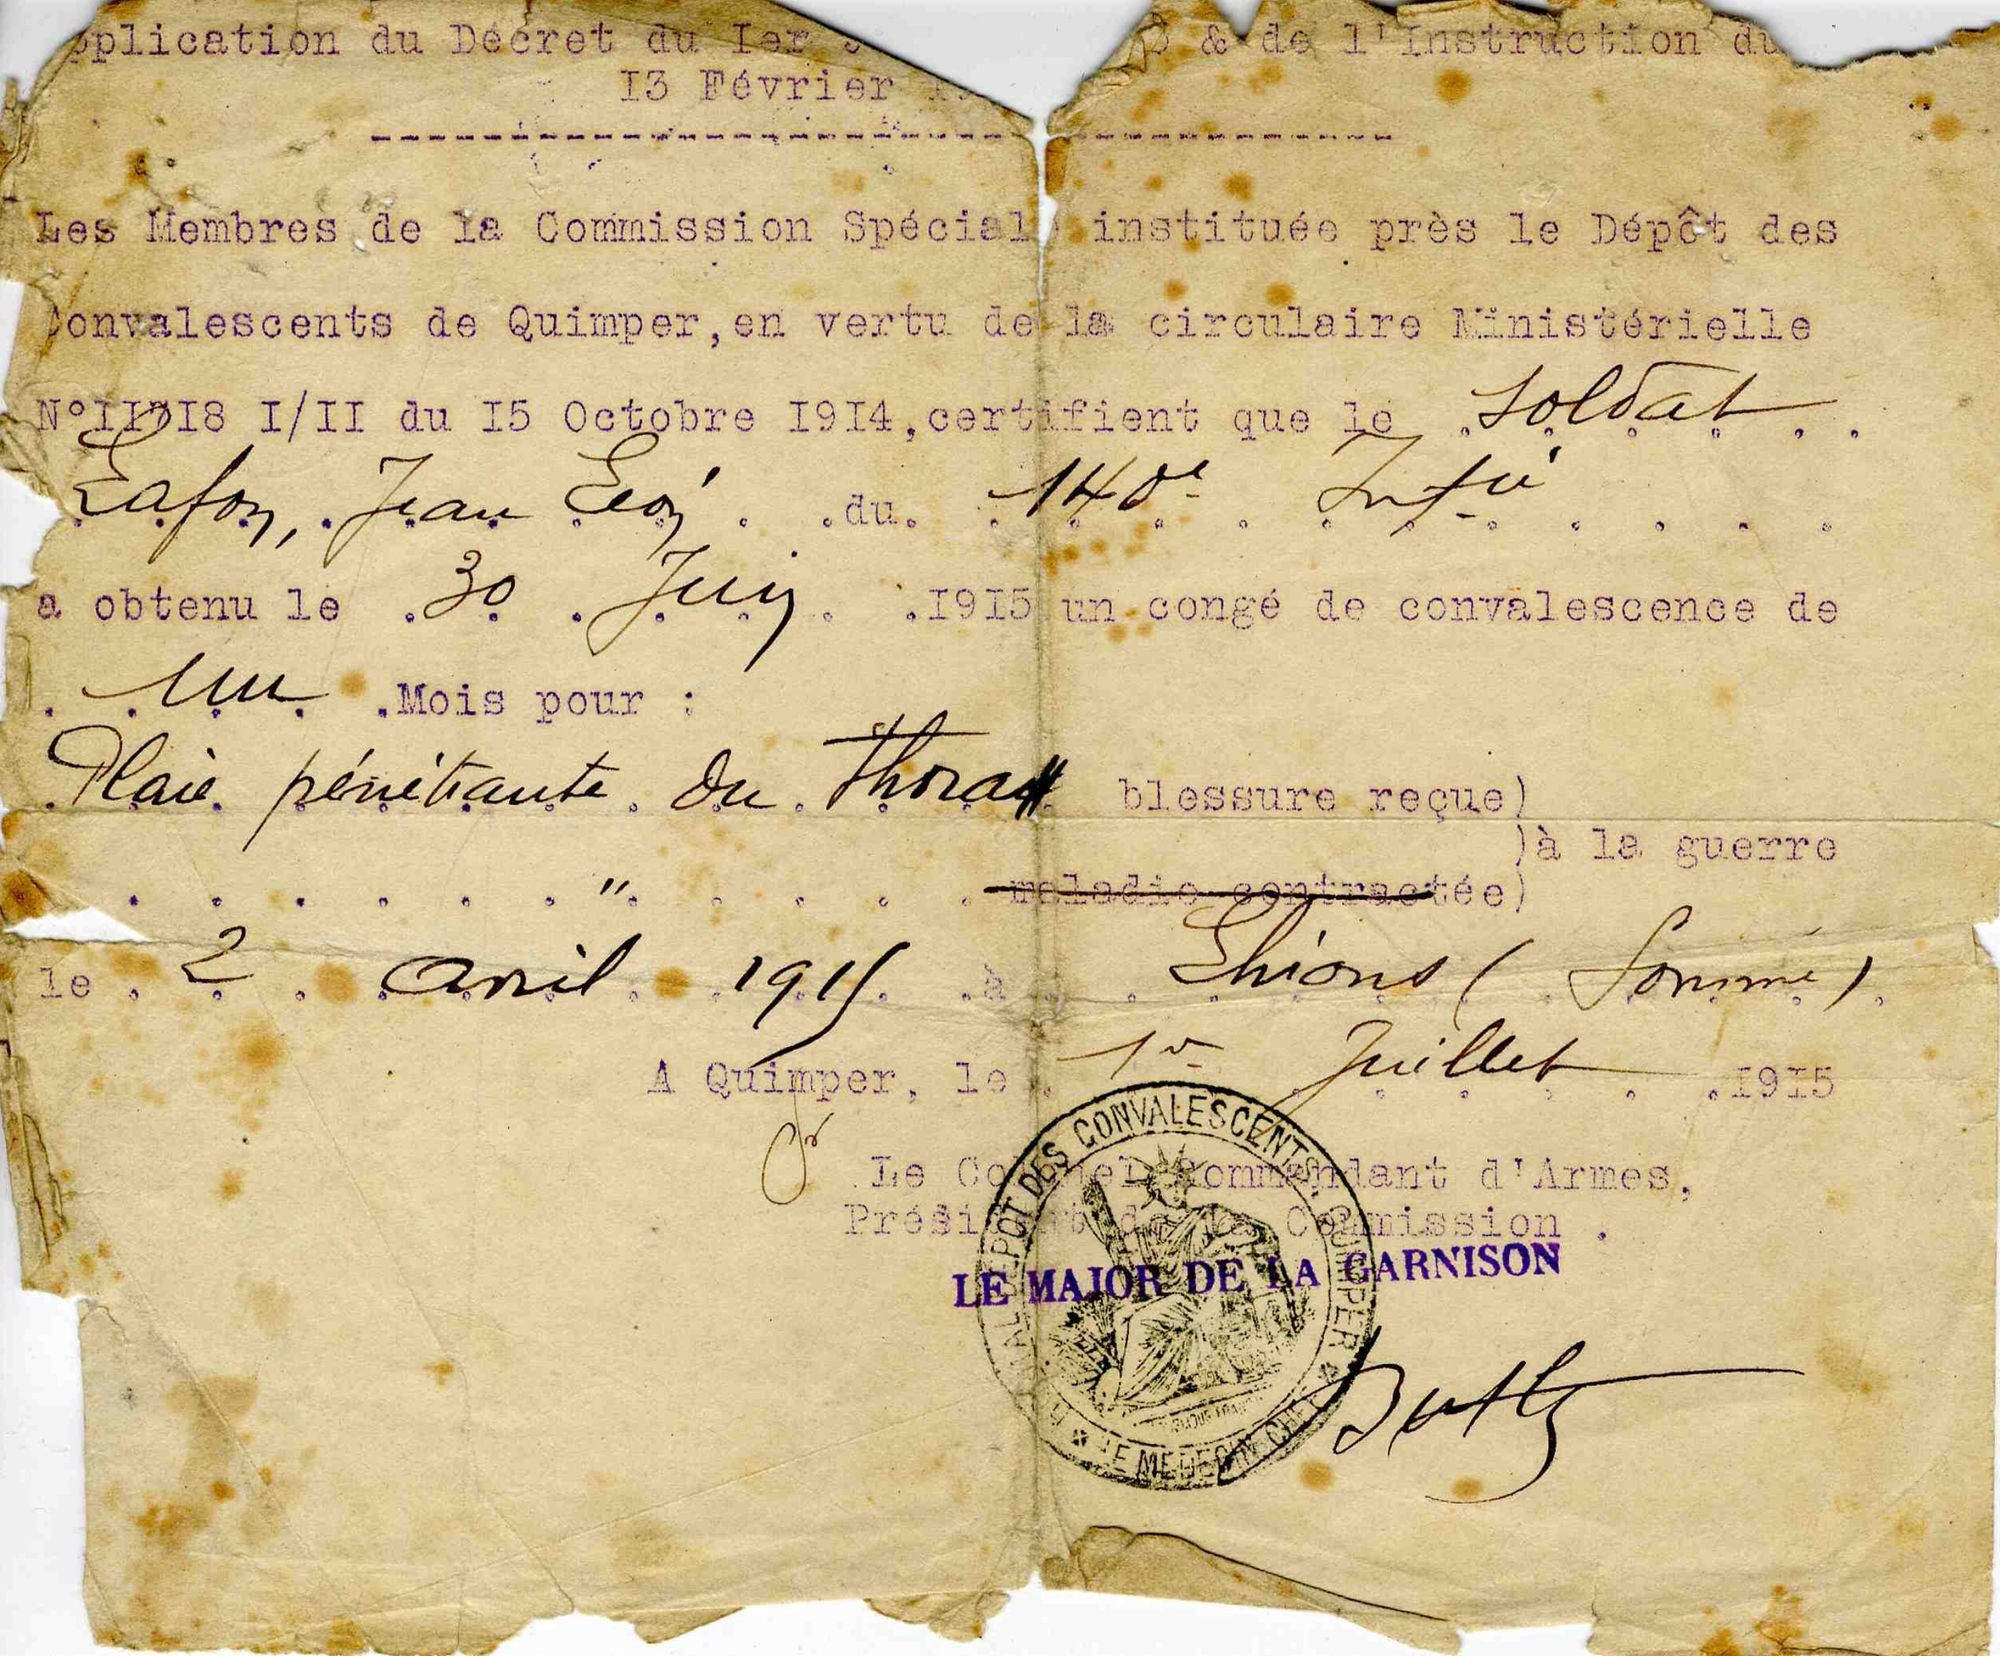 pplication du Décret du Ier & de l'Instruction du
13 Février
Les Membres de la Commission Spécial instituée près le Dépôt des
Convalescents de Quimper, en vertu de la circulaire Ministérielle
N°11718 I/II du 15 Octobre 1914, certifient que le soldat
Lafon, Jean Léon du 140e Inftie
a obtenu le 30 Juin 1915 un congé de convalescence de
un Mois pour :
Plaie pénétrante du Thorax blessure reçue)
)à la guerre
" maladie contractée)
le 2 avril 1915 à Lihons (Somme)
A Quimper, le 1er Juillet 1915
Pr Le Colonel Commandant d'Armes,
Président de la Commission .
LE MAJOR DE LA GARNISON
DEPOT DES CONVALESCENTS QUIMPER
LE MEDECIN CHEF